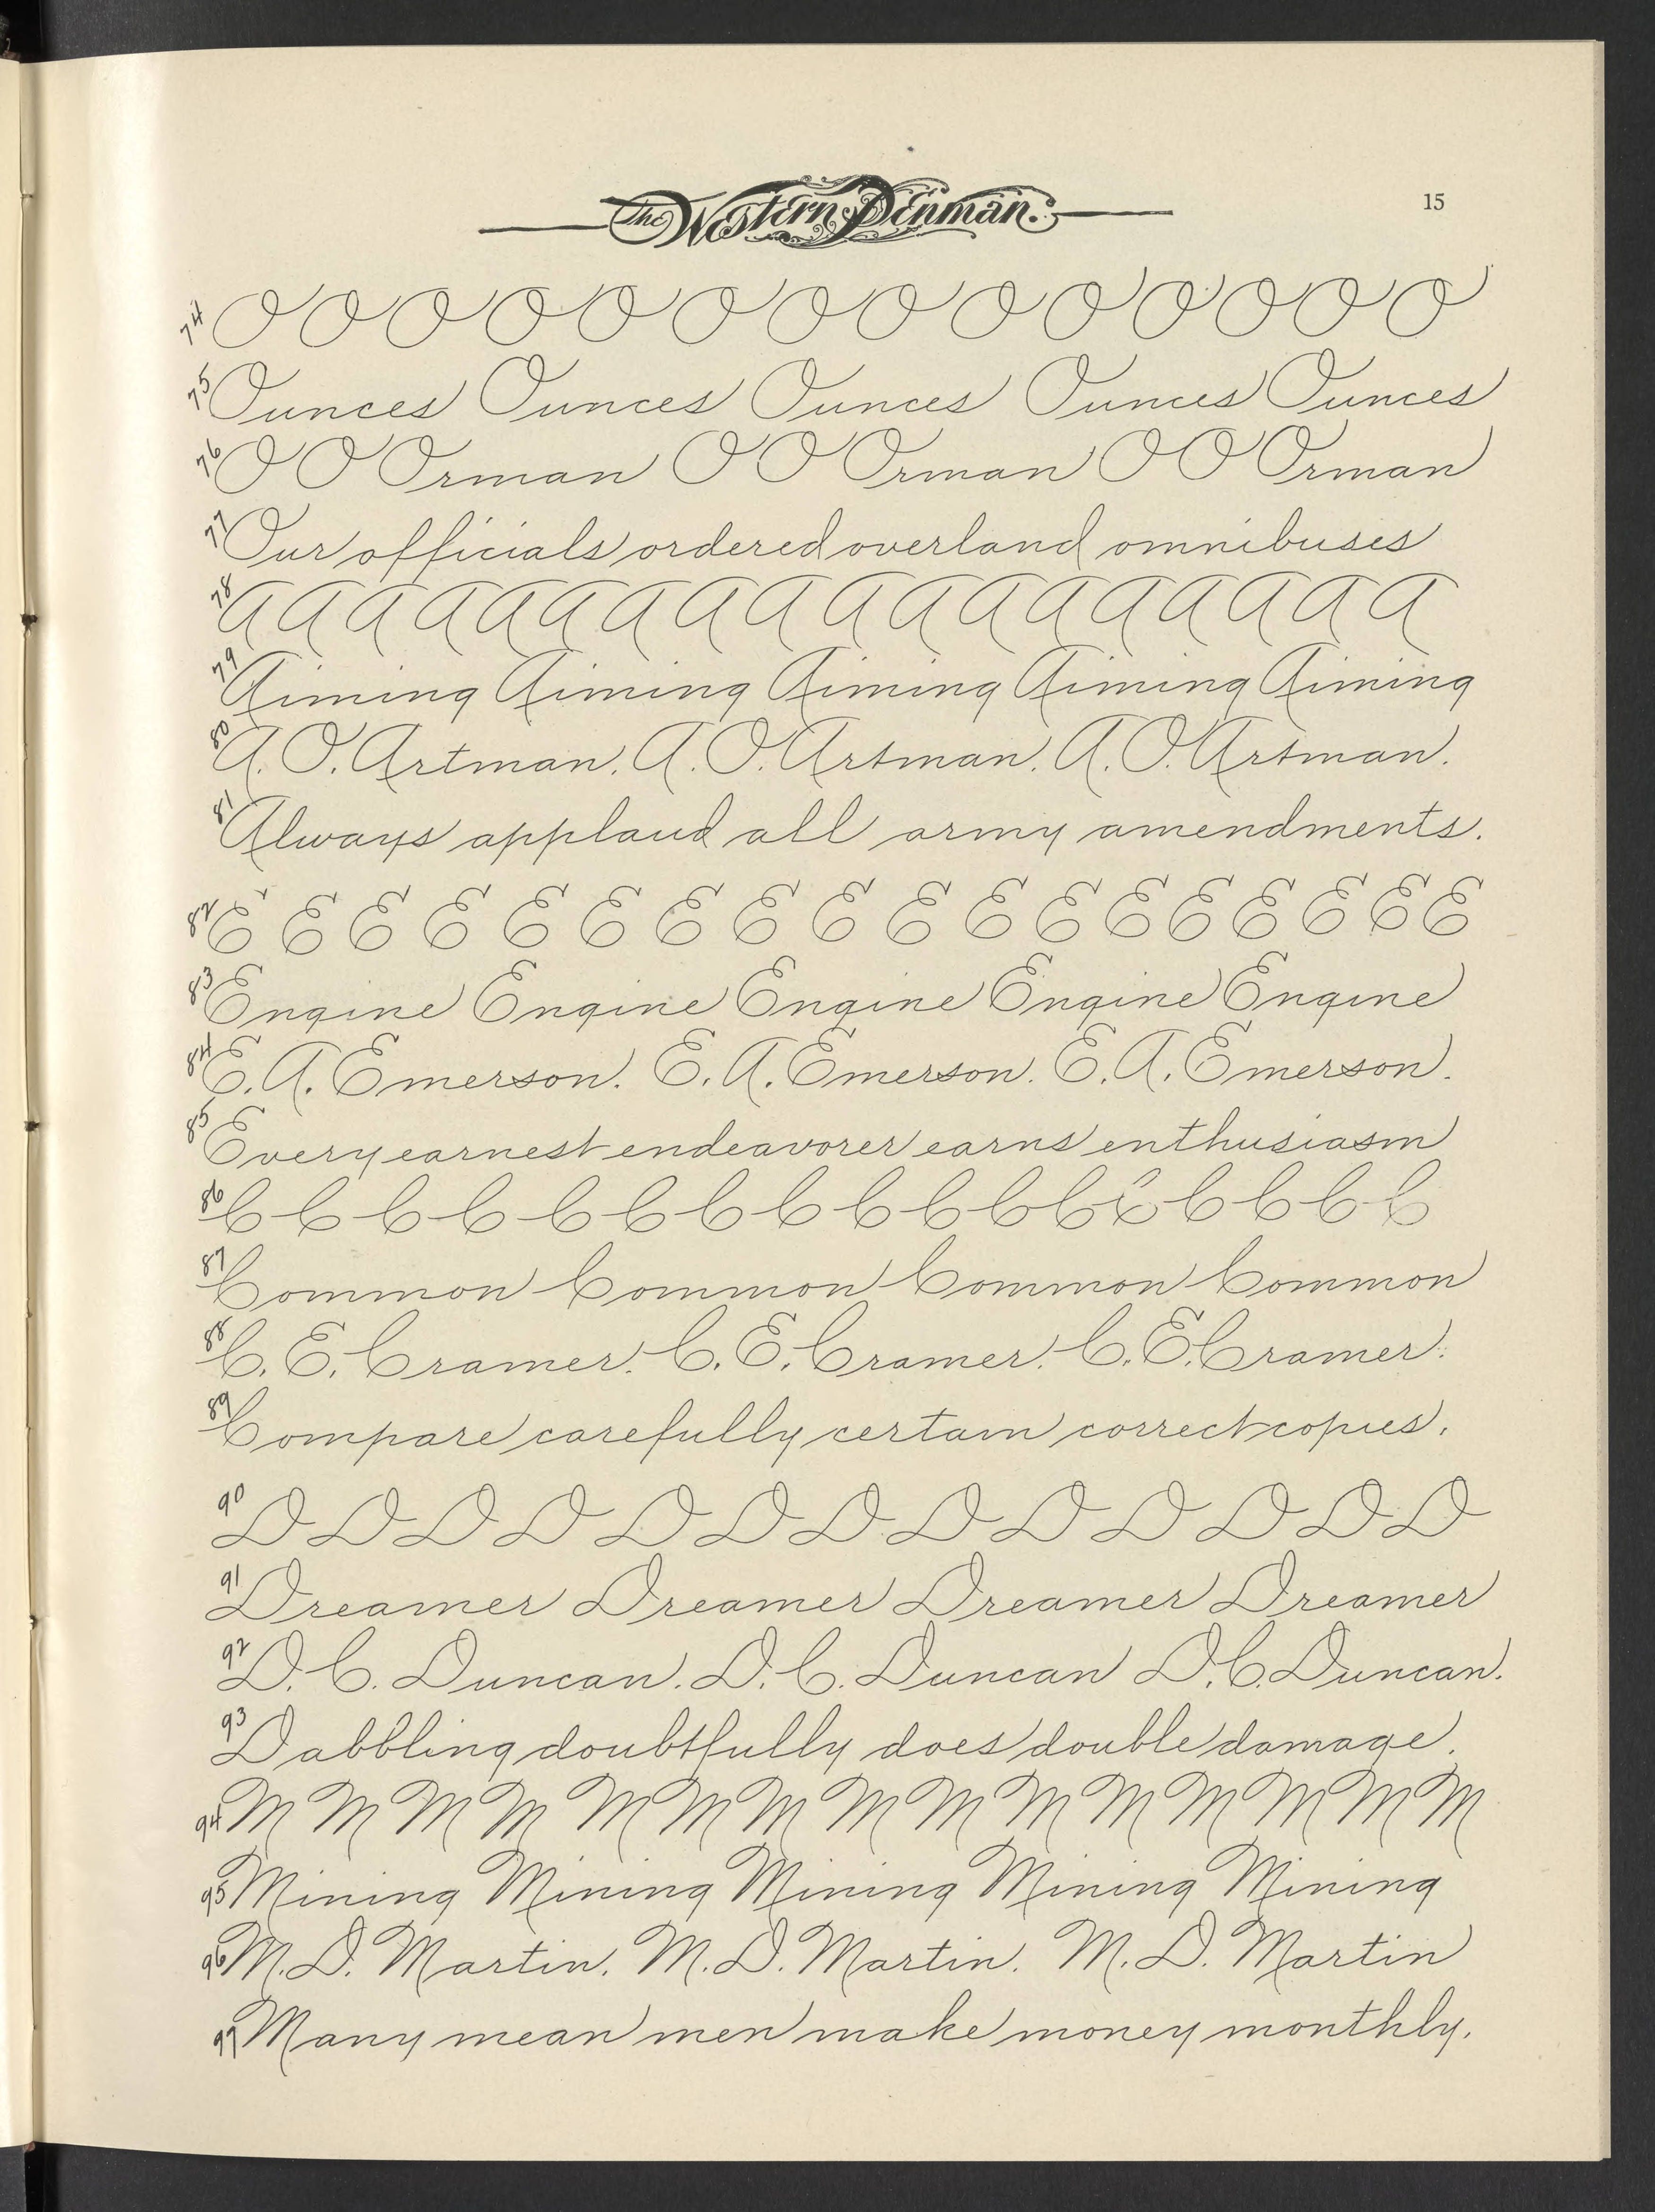 The Western Penman.
15
74 O O O O O O O O O O O O O O
75 Ounces Ounces Ounces Ounces Ounces
76 O O Orman O O Orman O O Orman
77 Our officials ordered overland omnibuses
78 A A A A A A A A A A A A A A A A A A
79 Aiming Aiming Aiming Aiming Aiming
80 A. O. Artman. A. O. Artman. A. O. Artman.
81 Always applaud all army amendments.
82 E E E E E E E E E E E E E E E E E E
83 Engine Engine Engine Engine Engine
84 E. A. Emerson. E. A. Emerson. E. A. Emerson.
85 Every earnest endeavorer earns enthusiasm
86 C C C C C C C C C C C C C C C C C
87 Common Common Common Common
88 C. E. Cramer. C. E. Cramer. C. E. Cramer.
89 Compare carefully certain correct copies.
90 D D D D D D D D D D D D D
91 Dreamer Dreamer Dreamer Dreamer
92 D. C. Duncan. D. C. Duncan D. C. Duncan.
93 Dabbling doubtfully does double damage.
94 M M M M M M M M M M M M M M M
95 Mining Mining Mining Mining Mining
96 M. D. Martin. M. D. Martin. M. D. Martin
97 Many mean men make money monthly.